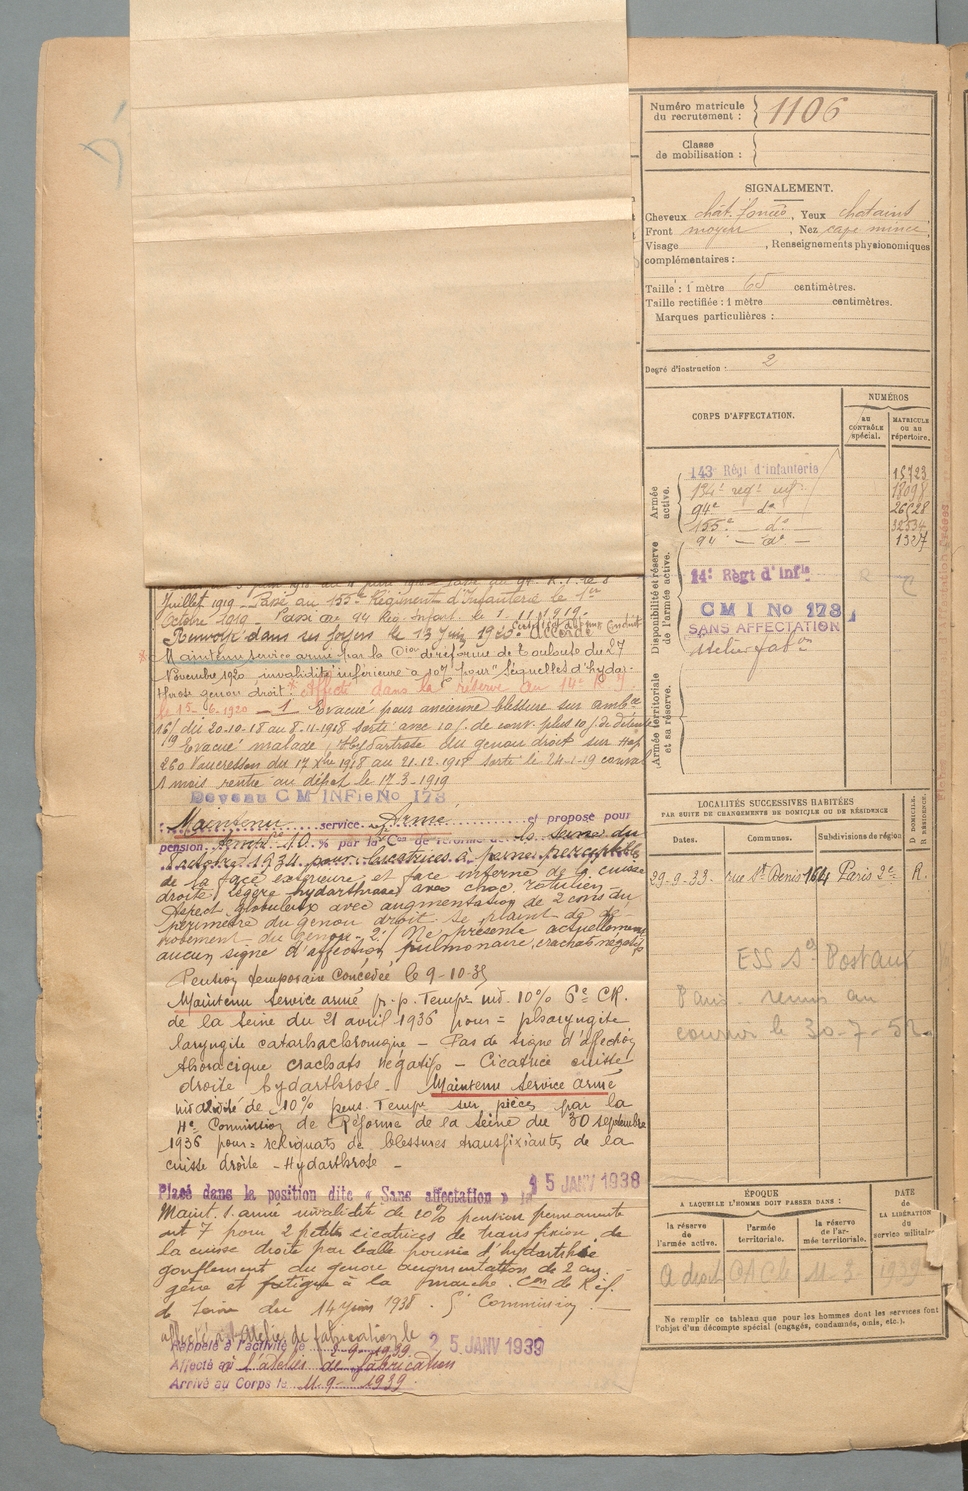 Numéro matricule
du recrutement : 1106
Classe
de mobilisation :
SIGNALEMENT.
Cheveux chât. foncé, Yeux chatains
Front moyen, Nez cave mince
Visage , Renseignements physionomiques
complémentaires :
Taille : 1 mètre 65 centimètres.
Taille rectifiée : 1 mètre centimètres.
Marques particulières :
Degré d'instruction : 2
CORPS D'AFFECTATION.
NUMÉROS
au
CONTRÔLE
spécial.
MATRICULE
ou au
répertoire.
Armée
active.
143e Régt d'infanterie 15723
134e regt inf
94e — do — 26528
155e — do — 32534
94e — do — 1327
Disponibilité et réserve
de l'armée active.
14e Régt d'Infie
C M I No 178
SANS AFFECTATION
Atelier fabon
Armée territoriale
et sa réserve.
LOCALITÉS SUCCESSIVES HABITÉES
PAR SUITE DE CHANGEMENTS DE DOMICILE OU DE RÉSIDENCE
Dates. Communes. Subdivisions de région D. DOMICILE. R. RÉSIDENCE.
29-9-33- rue St Denis 164 Paris 2e R.
Postaux
Paris - remis au
courroi le 30-7-52.
ÉPOQUE
A LAQUELLE L'HOMME DOIT PASSER DANS :
la réserve
de
l'armée active.
l'armée
territoriale.
la réserve
de l'ar-
mée territoriale.
DATE
de
LA LIBÉRATION
du
service militaire
Ne remplir ce tableau que pour les hommes dont les services font
l'objet d'un décompte spécial (engagés, condamnés, omis, etc.).
Juillet 1919 - Passé au 155e Régiment d'Infanterie le 1er
Octobre 1919 - Passé au 94 Reg. Infant. le 1.11.1919.
Renvoyé dans ses foyers le 13 Juin 1920. Certificat de bonne Conduite Accordé
Maintenu service armé par la Cion de réforme de Toulouse du 27
Novembre 1920 invalidité inférieure à 10% pour "Séquelles d'hydar-
throse genou droit. Affecté dans la réserve au 14e R. I
le 15-6.1920 - 1 Evacué pour ancienne blessure sur ambce
16/ du 20-10-18 au 8-11-1918 sorti avec 10 j. de conv. plus 10 j. de détente
Evacué malade, Hydartrose du genou droit sur Hop
260 Vaucresson du 17 Xbre 1918 au 21-12-1918 sorti le 24-1-19 conval
1 mois rentre au dépôt le 17-3-1919
Devenu C M INFie No 178
Maintenu service Armé et proposé pour
pension 10 % par la Con de réforme de la Seine du
1934 pour cicatrices à peine perceptibles
de la face extérieure et face interne de la cuisse
droite, légère hydarthrose avec choc rotulien
Aspect globuleux avec augmentation de 2 cms du
périmètre du genou droit se plaint de dé-
robement du genou. 2/ Ne présente actuellement
aucun signe d'affection pulmonaire, crachats négatifs
Pension temporaire concédée le 9-10-35
Maintenu service armé p. p. Tempre ind. 10% 6e CR.
de la Seine du 21 avril 1936 pour = pharyngite
laryngite catarhachronique - Pas de signe d'affection
thoracique crachats négatifs - Cicatrice cuisse
droite hydarthrose. Maintenu service armé
invalidité de 10% pens. Tempre sur pièces par la
4e Commission de Réforme de la Seine du 30 septembre
1936 pour = reliquats de blessures transfixiantes de la
cuisse droite - Hydarthrose -
Placé dans la position dite « Sans affectation » le 15 JANV 1938
Maint. s. armé invalidité de 10% pension permanente
art 7 pour 2 petites cicatrices de transfixion de
la cuisse droite par balle poussée d'hydarthrose
gonflement du genou augmentation de 2 cm.
gêne et fatigue à la marche. Con de Réf.
de Seine du 14 Juin 1938. 5e Commission.
affecté à l'atelier de fabrication le 25 JANV 1939
Rappelé à l'activité le 1939
Affecté à l'atelier de fabrication
Arrivé au Corps le 11.9-1939